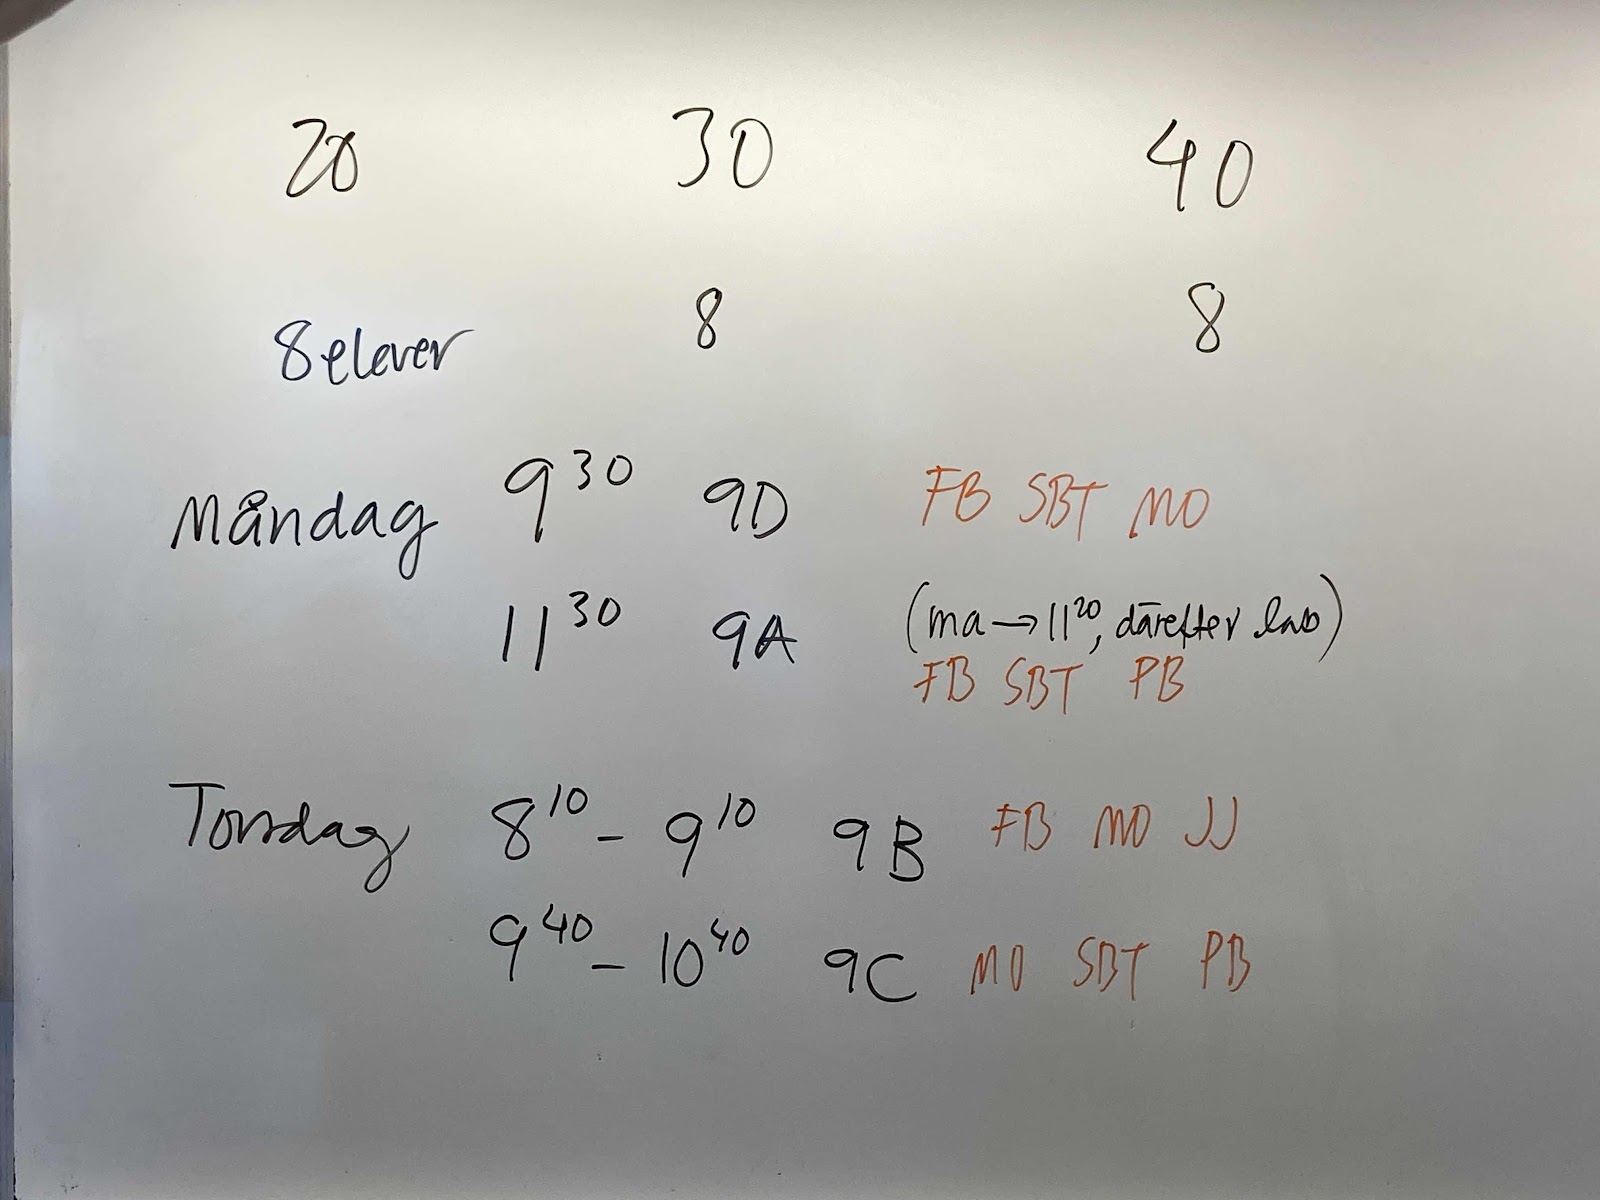 20 30 40
8 elever 8 8
Måndag 9³⁰ 9D FB SBT MO
11³⁰ 9A (ma → 11²⁰, därefter lab)
FB SBT PB
Torsdag 8¹⁰ - 9¹⁰ 9B FB MO JJ
9⁴⁰ - 10⁴⁰ 9C MO SBT PB